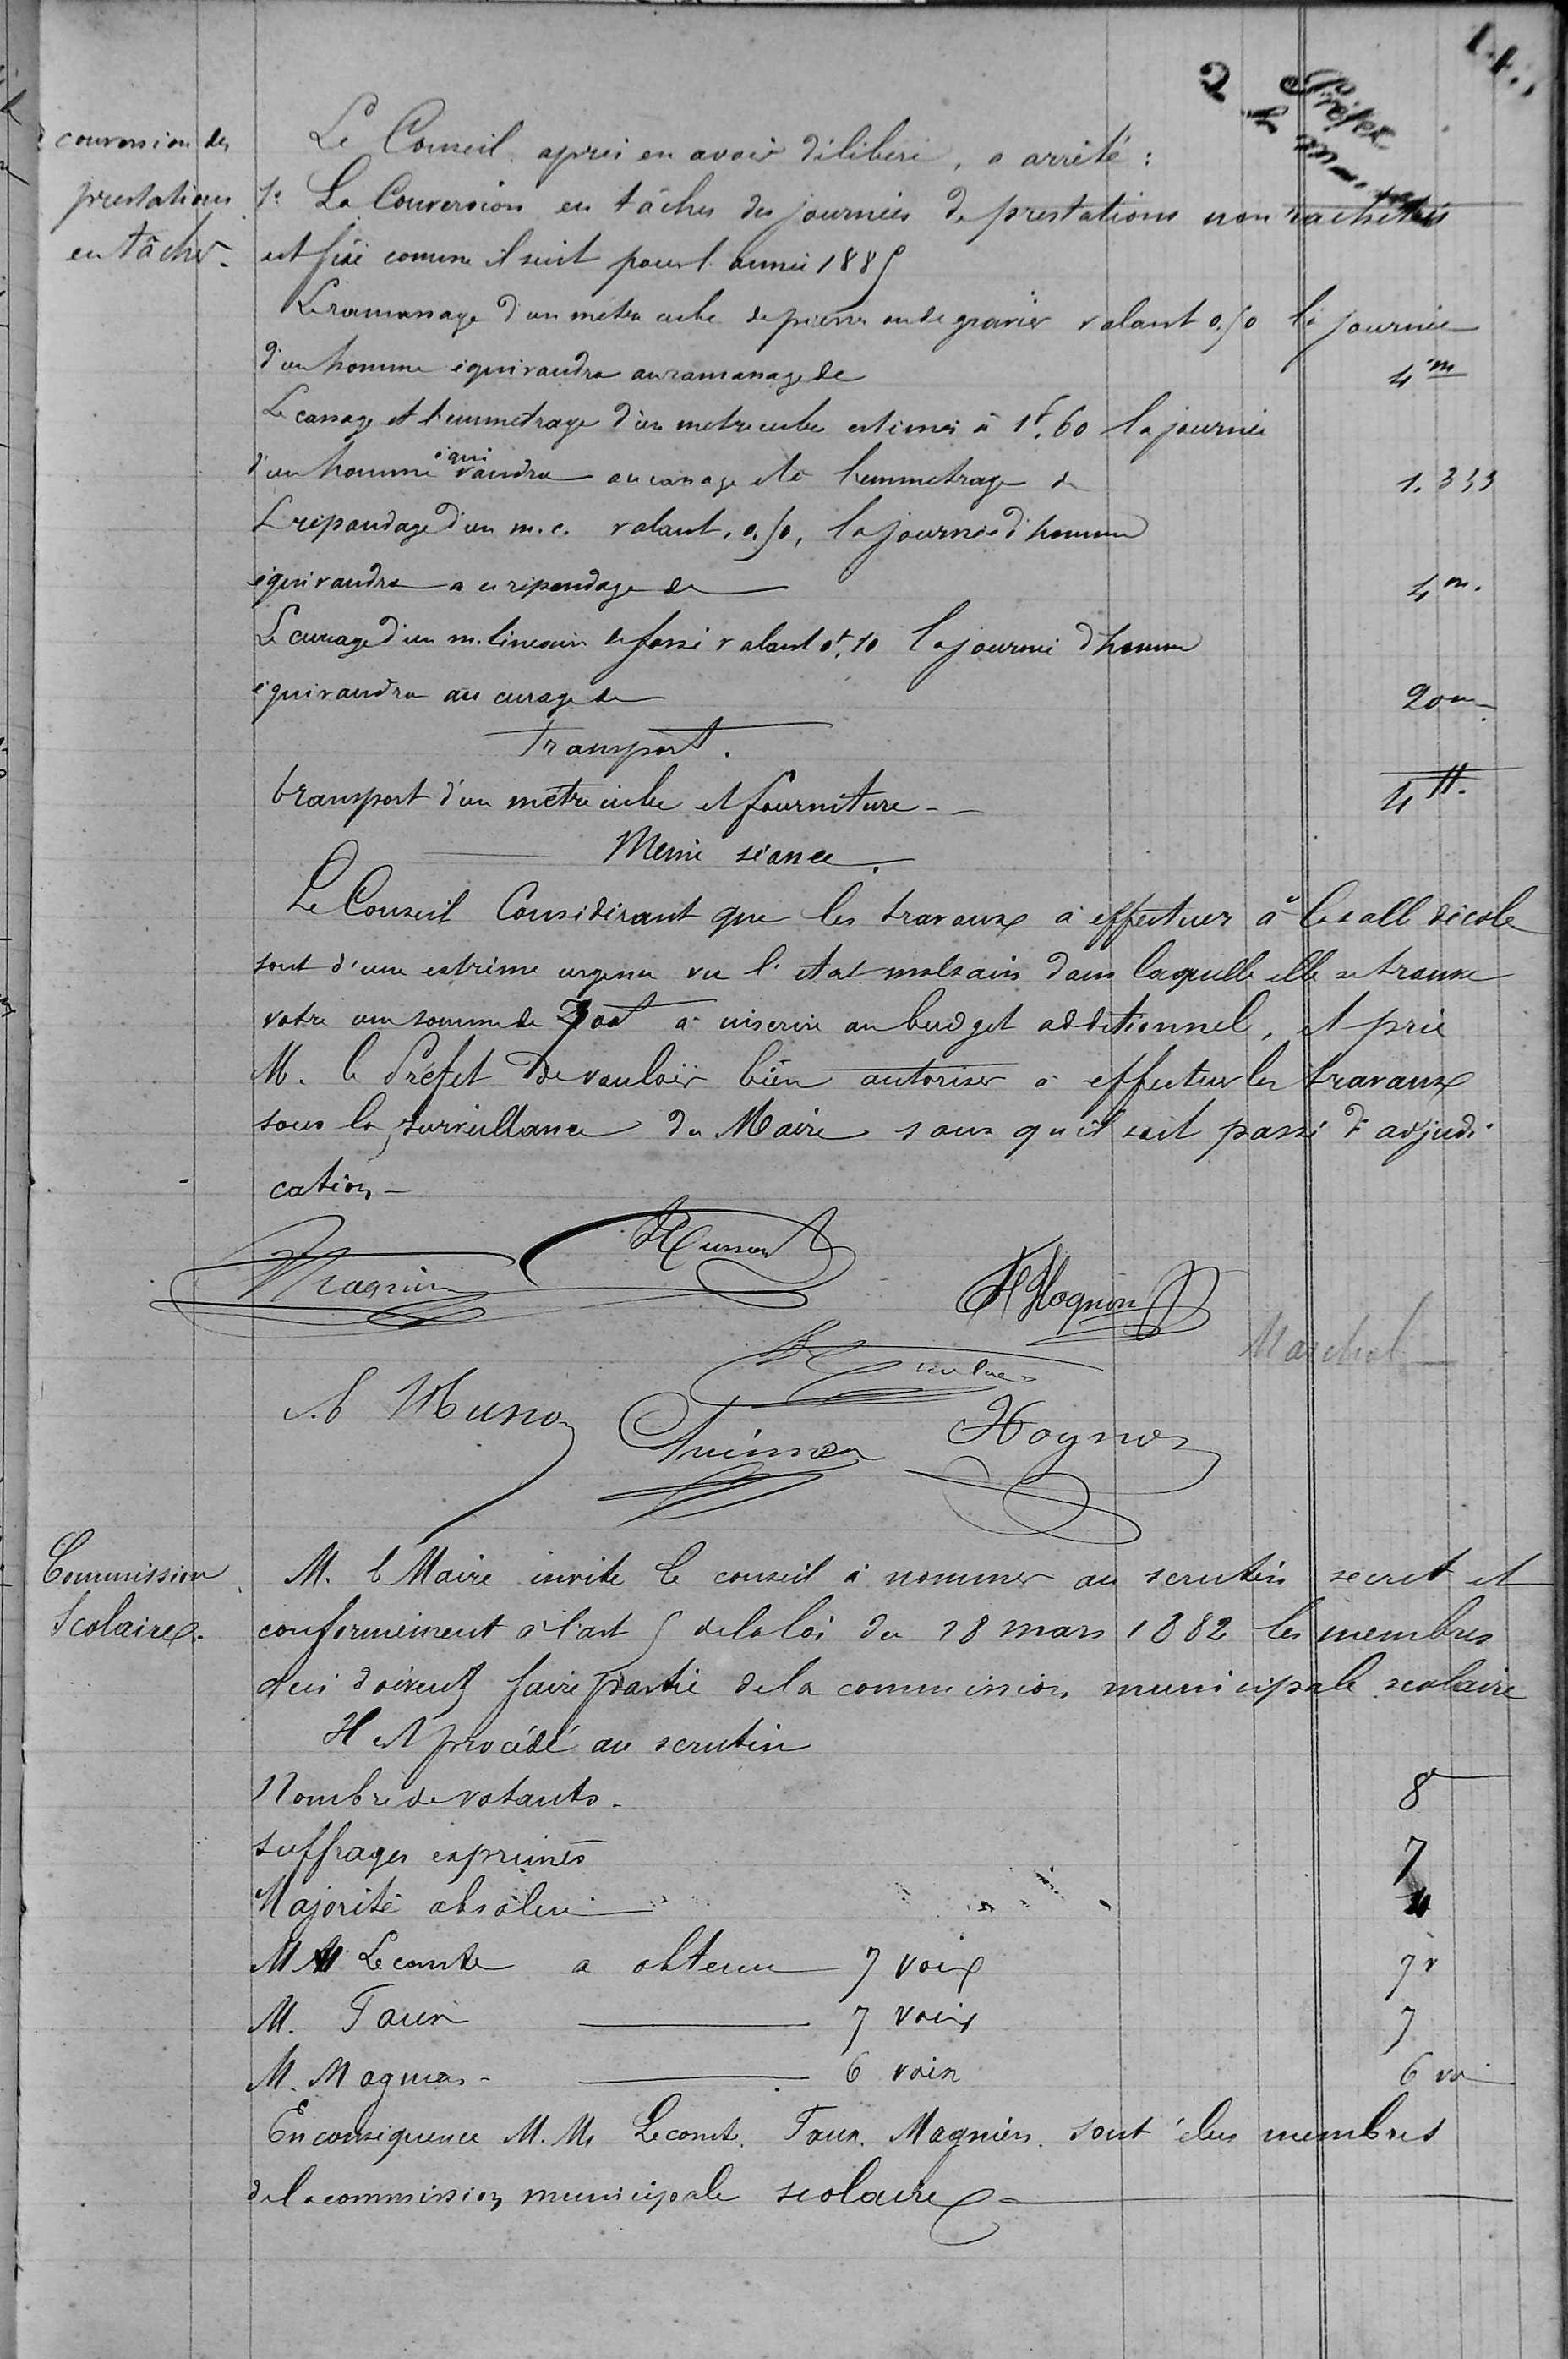 conversion des
prestations
en tâches.
Le Conseil, après en avoir déliberé, a arrêté :
1° La Conversion en tâches des journées de prestations non rachetées
est fixé comme il suit pour l'année 1885
Le ramassage d'un mètre cube de pierre ou de gravier valant 0,50 la journée
d'un homme équivaudra au ramassage de 4m
Le cassage et l'emmetrage d'un metre cube estimés à 1f,60 la journée
d'un homme équivaudra au cassage et à l'emmetrage de 1.333
L répandage d'un m.c. valant, 0,50, la journée d'homme
équivaudra a u répandage de 4m.
Le curage d'un m. lineaire de fossé valant 0f,10 la journée d'homme
équivaudra au curage de 20m.
Transport.
transport d'un mètre cube et fourniture - 4ff.
Même séance.
Le Conseil Considérant que les travaux à effectuer à la salle d'école
sont d'une extrême urgence vu l'état malsain dans laquelle elle se trouve
votre une somme de 700f à inscrire au budget additionnel, et prie
M. le Préfet de vouloir bien autoriser à effectuer les travaux
sous la surveillance du Maire sans qu'il soit passé d'adjudi
cation -
Magnien Husson
H Hognon
Marchal
Nicolas
A Husson
Hognon
Commission
Scolaire.
M. le Maire invite le conseil à nommer au scrutin secret et
conformément à l'art 5 de la loi du 28 mars 1882 les membres
qui doivent faire partie de la commission municipale scolaire
Il est procédé au scrutin
Nombre de votants - 8
suffrages exprimés 7
Majorité absolue 4
M M Lecomte a obtenu 7 voix 7v
M. Taun 7 voix 7
M. Magnien - 6 voix 6 vo
En conséquence M. Ms Lecomte. Taun. Magnien. sont élus membres
de la commission municipale scolaire